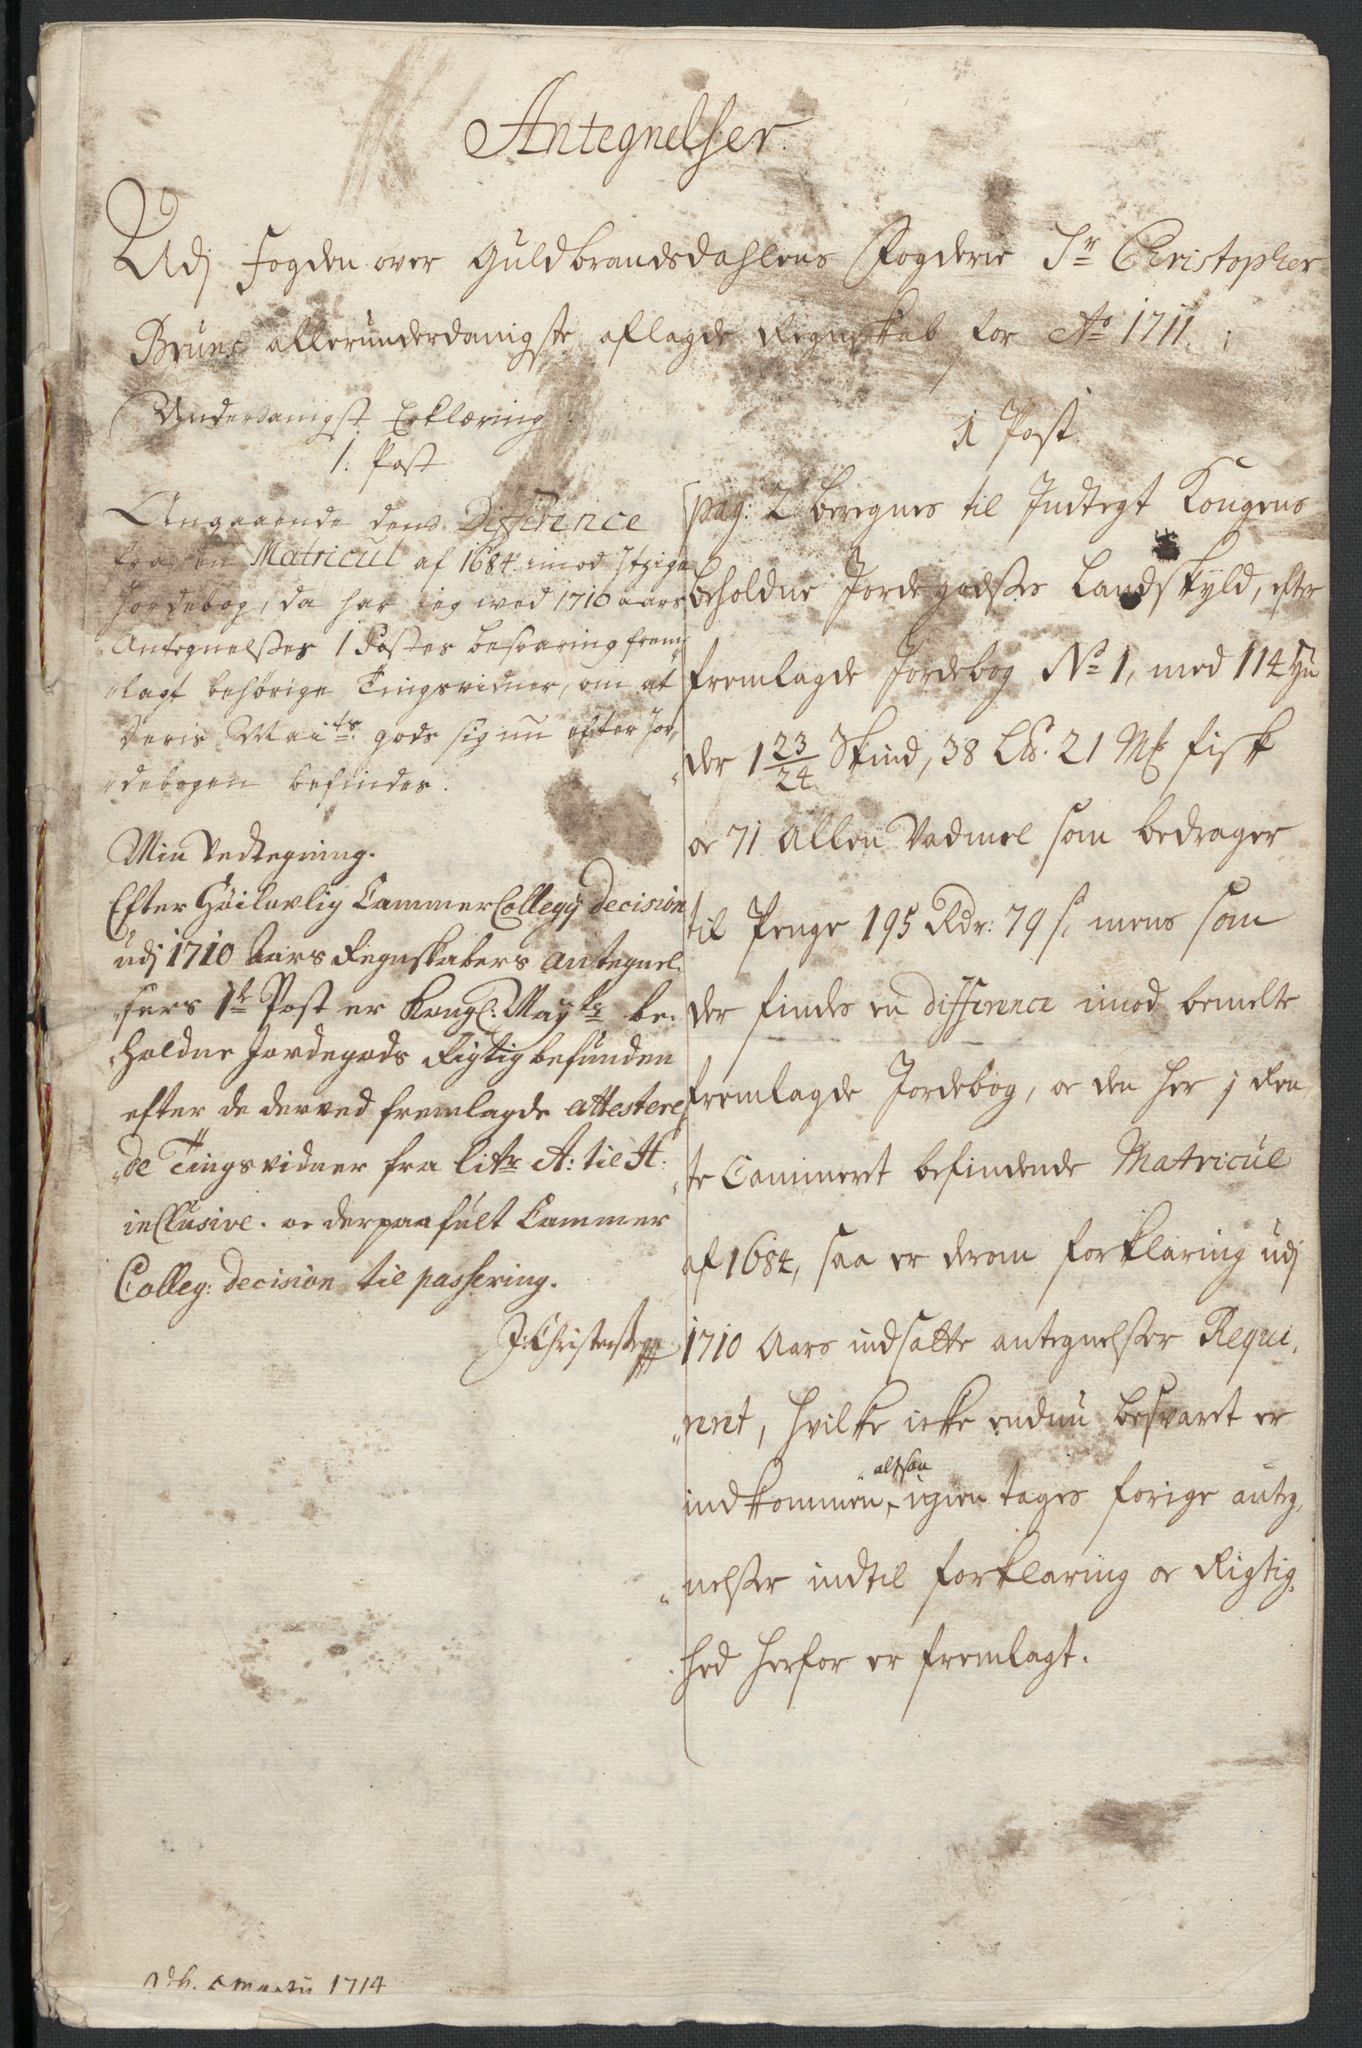 Antegnelser
Udj Fogden over Guldbrandsdahlens Fogderie Sr Christopher
Bruns allerunderdanigste aflagde Regnskab for Ao 1711.
Underdanigst Erklæring
1. Post
Angaaende dend Difference
fra den Matricul af 1684 imod itzige
Jordebog, da har jeg wed 1710 aars
Antegnelsers 1 Postes besvaring frem¬
"lagt behörige Tingsvidner, om at
Deris Maits gods sig nu efter Jor¬
"debogen befinder.
Min Vedtegning.
Efter Höilovlig CammerCollegij Decision
udj 1710 Aars Regnskabers antegnel¬
"sers 1te Post er Kongl: Mayts be¬
"holdne Jordegods Rigtig befunden
efter de derved fremlagde attestere¬
"de Tingsvidner fra litr A: til H:
inclusive. oc derpaa fult Cammer
Colleg: decision til passering.
J: Christens
1 Post
pag: 2 beregnes til Indtegt Kongens
beholdne Jordegodses Landskyld, efter
fremlagde Jordebog No 1, med 114 Hu¬
der 1 23/24 Skind, 38 Lb. 21 Mk fisk
oc 71 Allen Vadmel som bedrager
til Penge 195 Rdr: 79 s, mens som
der findes en difference imod bemelte
fremlagde Jordebog, oc den her j Ren¬
"te Cammeret befindende Matricul
af 1684, saa er derom forklaring udj
1710 Aars indsatte antegnelser Requi¬
"rert, hvilke icke endnu besvaret er
indkommen, altsaa igientages forige anteg¬
"nelser indtil forklaring oc Rigtig¬
"hed herfor er fremlagt.
Martij 1714